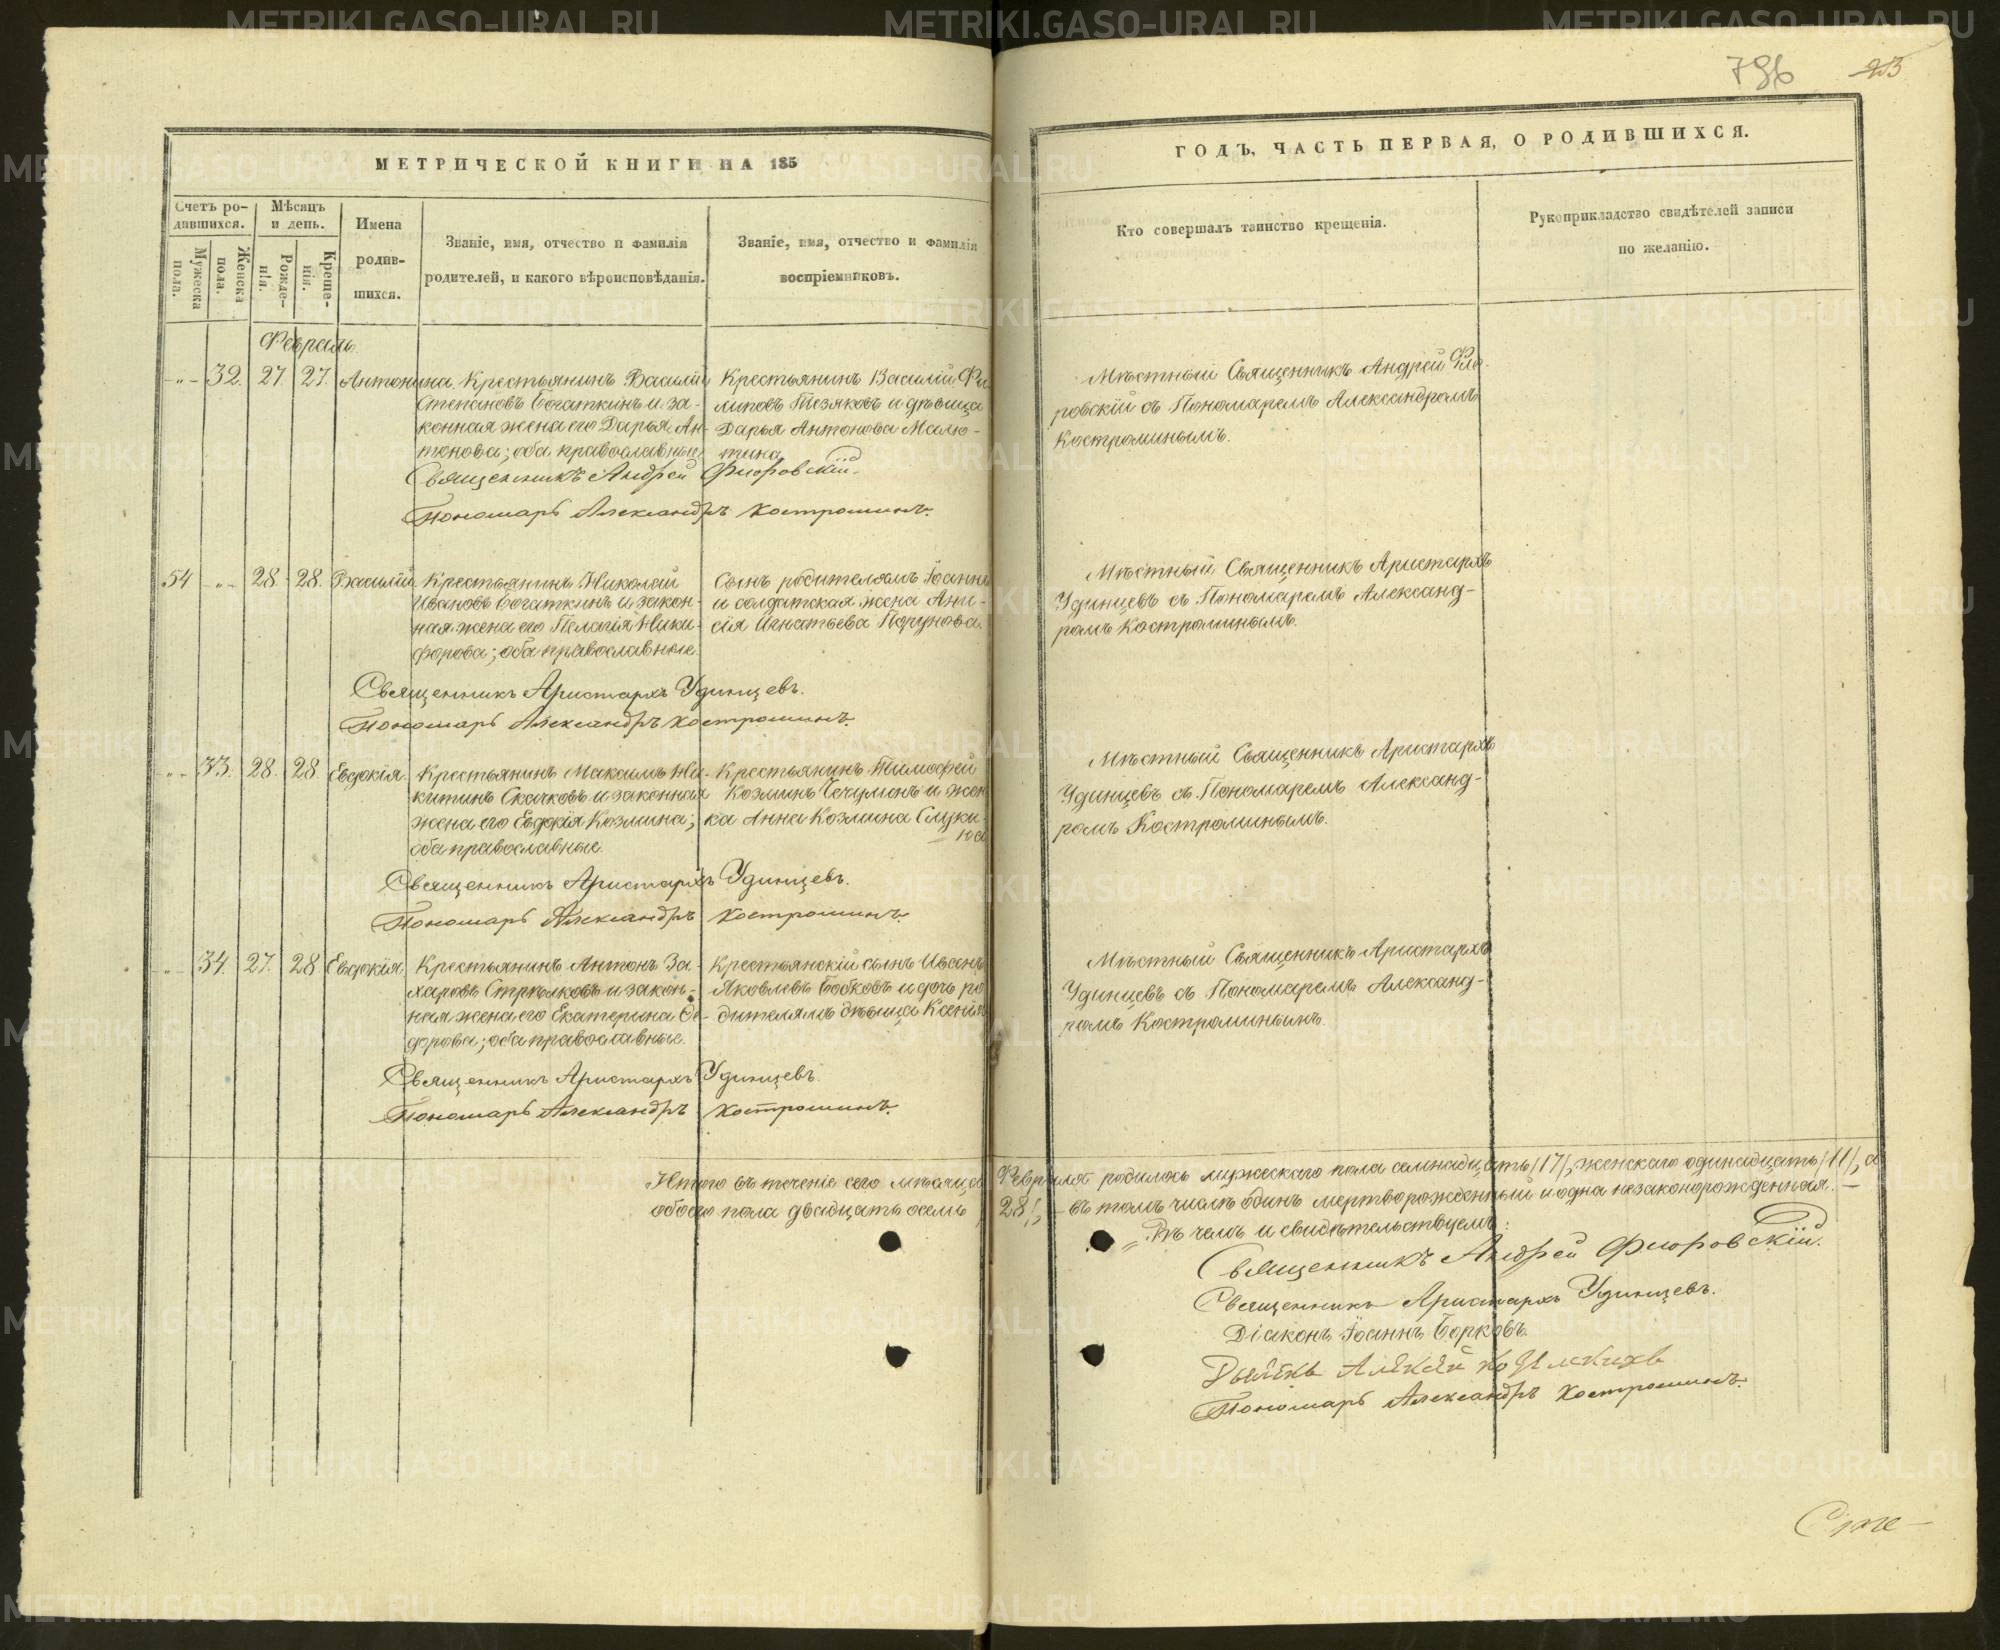 796 213
МЕТРИЧЕСКОЙ КНИГИ НА 185
ГОДЪ, ЧАСТЬ ПЕРВАЯ, О РОДИВШИХСЯ.
Счетъ ро-
дившихся.
Мужеска
пола.
Женска
пола.
Мѣсяцъ
и день.
Рожде-
нія.
Креще-
нія.
Имена
родив-
шихся.
Званіе, имя, отчество и фамилія
родителей, и какого вѣроисповѣданія.
Званіе, имя, отчество и фамилія
воспріемниковъ.
Кто совершалъ таинство крещенія.
Рукоприкладство свидѣтелей записи
по желанію.
Февраль
-"- 32. 27. 27. Антонина
Крестьянинъ Василій
Степановъ Богаткинъ и за-
конная жена его Дарья Ан-
тонова; оба православные
Крестьянинъ Василій Фи
липовъ Тезяковъ и дѣвица
Дарья Антонова Малю-
тина
Мѣстный Священникъ Андрей Фло-
ровскій съ Пономаремъ Александромъ
Костроминымъ.
Священникъ Андрей Флоровскій.
Пономарь Александръ Костроминъ.
54 -"- 28. 28. Василій
Крестьянинъ Николай
Ивановъ Богаткинъ и закон-
ная жена его Пелагія Ники-
форова; оба православные.
Сынъ родителямъ Іоаннъ
и солдатская жена Ани-
сія Игнатьева
Мѣстный Священникъ Аристархъ
Удинцевъ съ Пономаремъ Александ-
ромъ Костроминымъ.
Священникъ Аристархъ Удинцевъ.
Пономарь Александръ Костроминъ.
-"- 33. 28. 28 Евдокія
Крестьянинъ Максимъ Ни-
китинъ Скачковъ и законная
жена его Евдокія Козмина;
оба православные
Крестьянинъ Тимофей
Козминъ и жен
ка Анна Козмина
Мѣстный Священникъ Аристархъ
Удинцевъ съ Пономаремъ Александ-
ромъ Костроминымъ.
Священникъ Аристархъ Удинцевъ.
Пономарь Александръ Костроминъ.
-"- 34. 27. 28 Евдокія
Крестьянинъ Антонъ За-
харовъ Стрѣлковъ и закон-
ная жена его Екатерина Ѳе-
дорова; оба православные.
Крестьянскій сынъ
Яковлевъ Бобковъ и дочь ро
дителямъ дѣвица Ксенія
Мѣстный Священникъ Аристархъ
Удинцевъ съ Пономаремъ Александ-
ромъ Костроминымъ.
Священникъ Аристархъ Удинцевъ.
Пономарь Александръ Костроминъ.
Итого въ теченіе сего мѣсяца Февраля родилось мужескаго пола семнадцать /17/, женскаго одинадцать /11/, а
обоего пола двадцать осемь /28/, – въ томъ числѣ одинъ мертворожденный и одна незаконорожденная. –
Въ чемъ и свидѣтельствуемъ:
Священникъ Андрей Флоровскій.
Священникъ Аристархъ Удинцевъ.
Діаконъ Іоаннъ Борковъ.
Пономарь Александръ Костроминъ.
METRIKI.GASO-URAL.RU